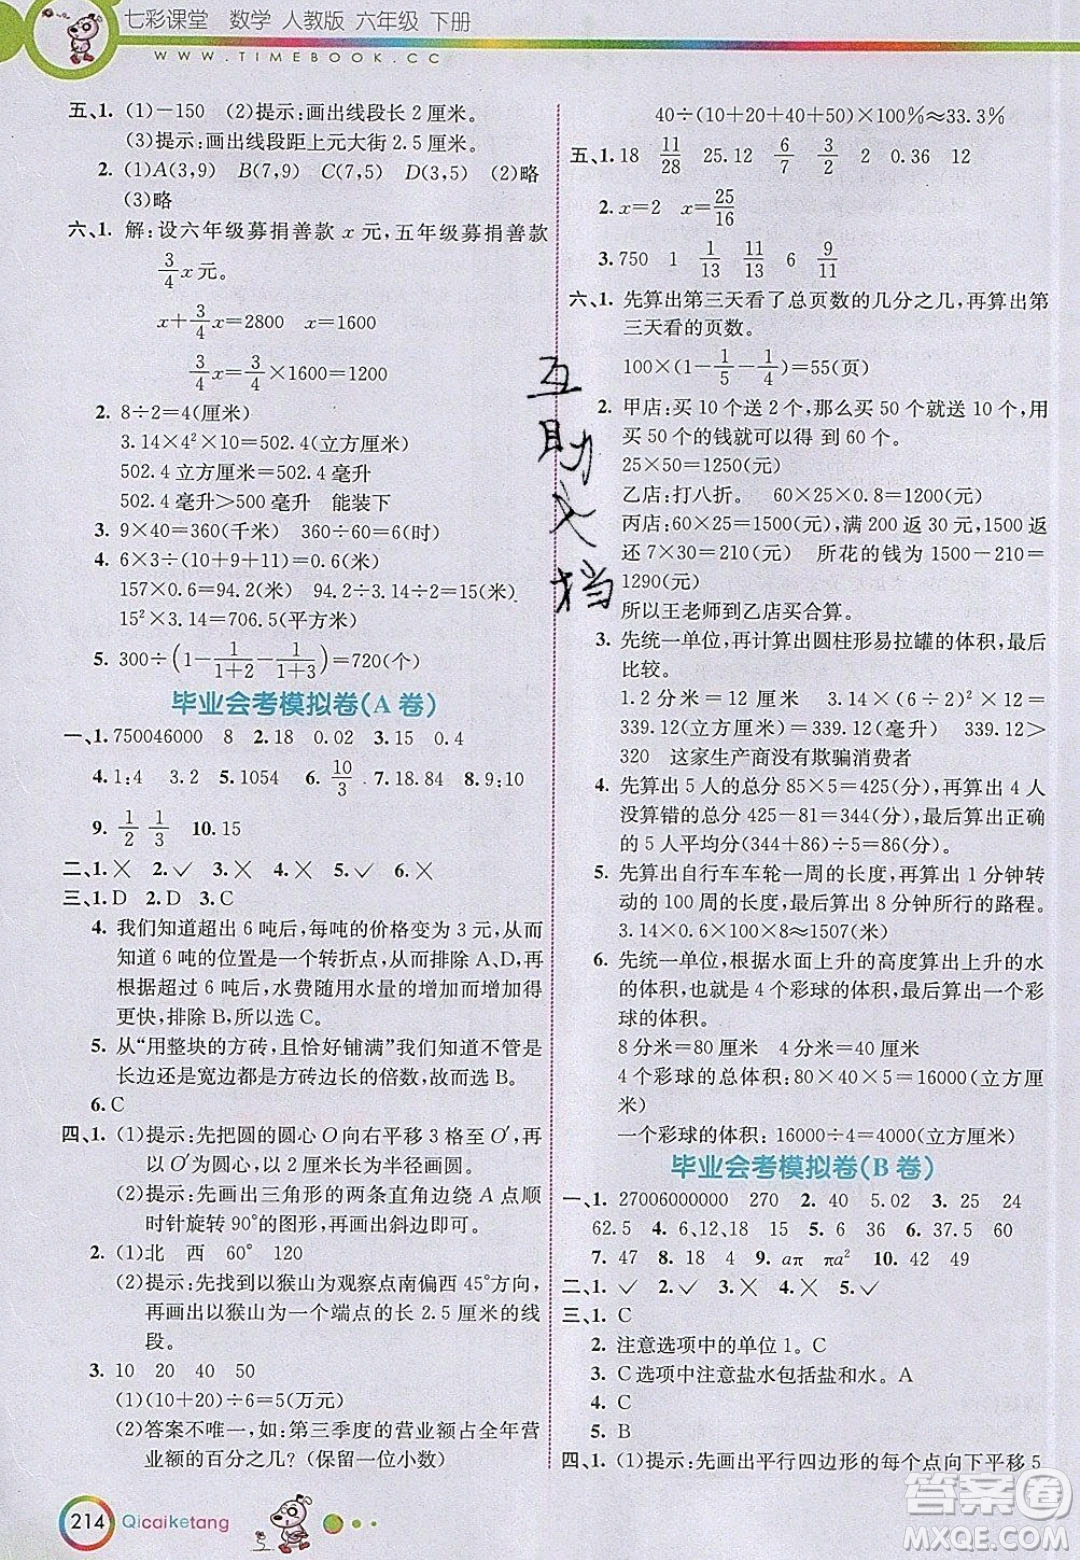 七彩课堂 数学 人教版 六年级 下册
WWW.TIMEBOOK.CC
五、1. (1)－150 (2)提示:画出线段长 2 厘米。
(3)提示:画出线段距上元大街 2.5 厘米。
2. (1)A(3,9) B(7,9) C(6,5) D(3,5) (2)略
(3)略
六、1. 解:设六年级募捐善款 x 元,五年级募捐善款
3/4 x 元。
x+3/4 x=2800 x=1600
3/4 x=3/4×1600=1200
2. 8÷2=4(厘米)
3.14×4²×10=502.4(立方厘米)
502.4 立方厘米=502.4 毫升
502.4 毫升>500 毫升 能装下
3. 9×40=360(千米) 360÷60=6(时)
4. 6×3÷(10+9+11)=0.6(米)
157×0.6=94.2(米) 94.2÷3.14÷2=15(米)
15²×3.14=706.5(平方米)
5. 300÷(1－1/(1+2)－1/(1+3))=720(个)
毕业会考模拟卷(A 卷)
一、1.750046000 8 2.18 0.02 3.15 0.4
4.1:4 3.2 5.1054 6.10/3 7.18.84 8.9.12
9. 1/2 1/3 10.15
二、1.✕ 2.✓ 3.✓ 4.✕ 5.✕
三、1.D 2.D 3.C
4. 我们知道超出 6 吨后,每吨的价格变为 3 元,由此
知道 6 吨的位置是一个转折点,从而排除 A、D,再根
据超过 6 吨后,水费随用水量的增加而增加得更快,
更快,排除 B,所以选 C。
5. 从“用整块的方砖,且恰好铺满”我们知道不管是
长边还是宽边都是方砖边长的倍数,故选 B。
6.C
四、1. (1)提示:先把圆的圆心 O 向右平移 3 格至 O′,再
以 O′为圆心,以原来的圆的半径为半径画圆。
(2)提示:画出三角形的两条直角边绕 A 点顺
时针旋转 90°的图形,再画出斜边即可。
2. (1)北 西 60° 120
(2)提示:先找到以猴山为观察点南偏西 45°方向,
再画出以猴山为一个端点的长 2.5 厘米的线
段。
3. 10 20 40 50
(1)(10+20)÷6=5(万元)
(2)答案不唯一,如:第三季度的营业额占全年营
业额的百分之几?(保留一位小数)
40÷(10+20+40+50)×100%≈33.3%
五、1. 18 11/28 25.12 6/7 3/2 2 0.36 12
2. x=2 x=25/16
3. 750 1 1/13 11/13 6 9/11
六、1. 先算出第三天看了总页数的几分之几,再算出第
三天看的页数。
100×(1－1/5－1/4)=55(页)
2. 甲店:买 10 个送 2 个,那么买 50 个就送 10 个,用
买 50 个的钱就可以得 到 60 个。
25×50=1250(元)
乙店:打八折。 60×25×0.8=1200(元)
丙店:60×25=1500(元),满 200 返 30 元,1500 里
还 7×30=210(元) 所花的钱为 1500－210=
1290(元)
所以王老师到乙店买合算。
3. 先统一单位,再计算出圆柱形易拉罐的体积,最后
比较。
1.2 分米=12 厘米 3.14×(6÷2)²×12=
339.12(立方厘米)=339.12(毫升) 339.12>
320 这家生产商没有欺骗消费者
4. 先算出 5 人的总分 85×5=425(分),再算出其他
没算错的总分 425－81=344(分),最后算出正确
的 5 人平均分(344+86)÷5=86(分)
5. 先算出自行车车轮一周的长度,再算出 1 分钟转动
的 100 周的长度,最后算出 8 分钟所行的路程。
3.14×0.6×100×8≈1507(米)
6. 先统一单位,再根据水面上升的高度算出上升的水
的体积,也就是 4 个彩球的体积,最后算出一个彩
球的体积。
8 分米=80 厘米 4 分米=40 厘米
4 个彩球的总体积:80×40×5=16000(立方厘
米)
一个彩球的体积:16000÷4=4000(立方厘米)
毕业会考模拟卷(B 卷)
一、1. 27006000000 270 2. 40 5.02 3. 25 24
62.5 4. 6,12,18 15 5. 6 36 6. 37.5 60
7. 47 8. 18 4 9. aπ πa² 10. 42 49
二、1. ✓ 2. ✕ 3. ✕ 4. ✕ 5. ✓
三、1. C
2. 注意选项中的单位 1。C
3. C 选项中注意盐水包括盐和水。A
4. C
5. B
四、1. (1)提示:先画出平行四边形的每个点向下平移 5
互助文档
214 Qicaiketang
答案圈
MXQE.COM